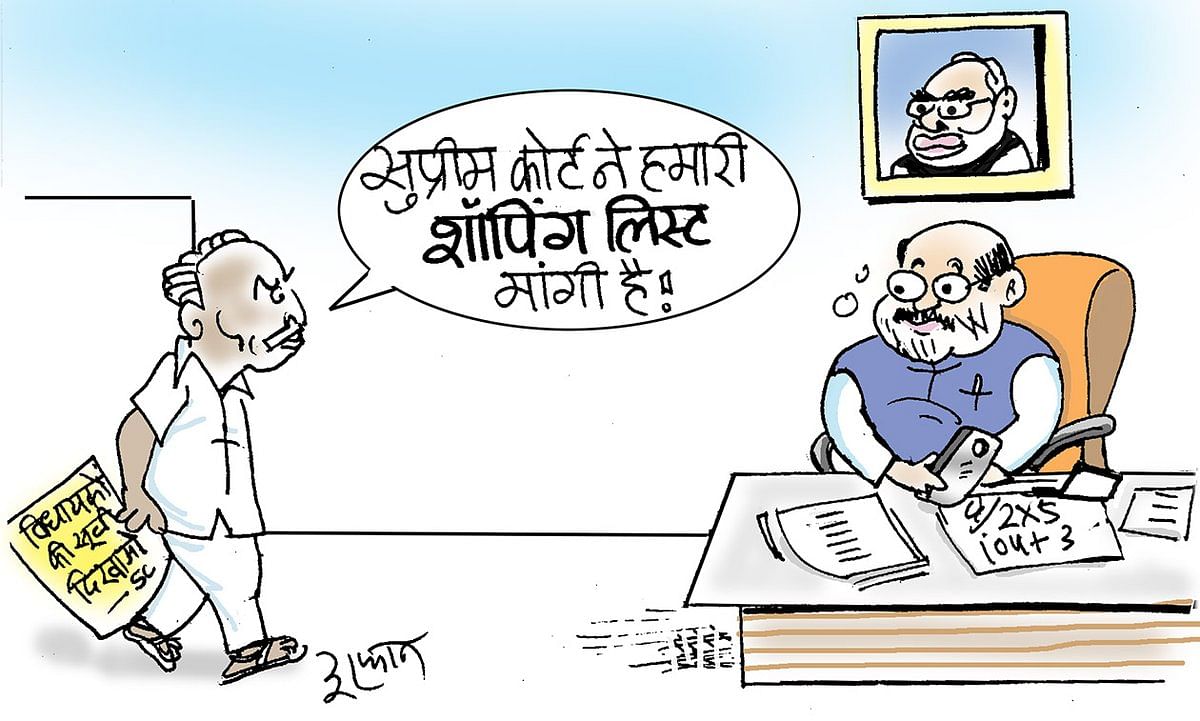 सुप्रीम कोर्ट ने हमारी
शॉपिंग लिस्ट
मांगी है!
विधायकों
की सूची
दिखाओ
SC
इरफान